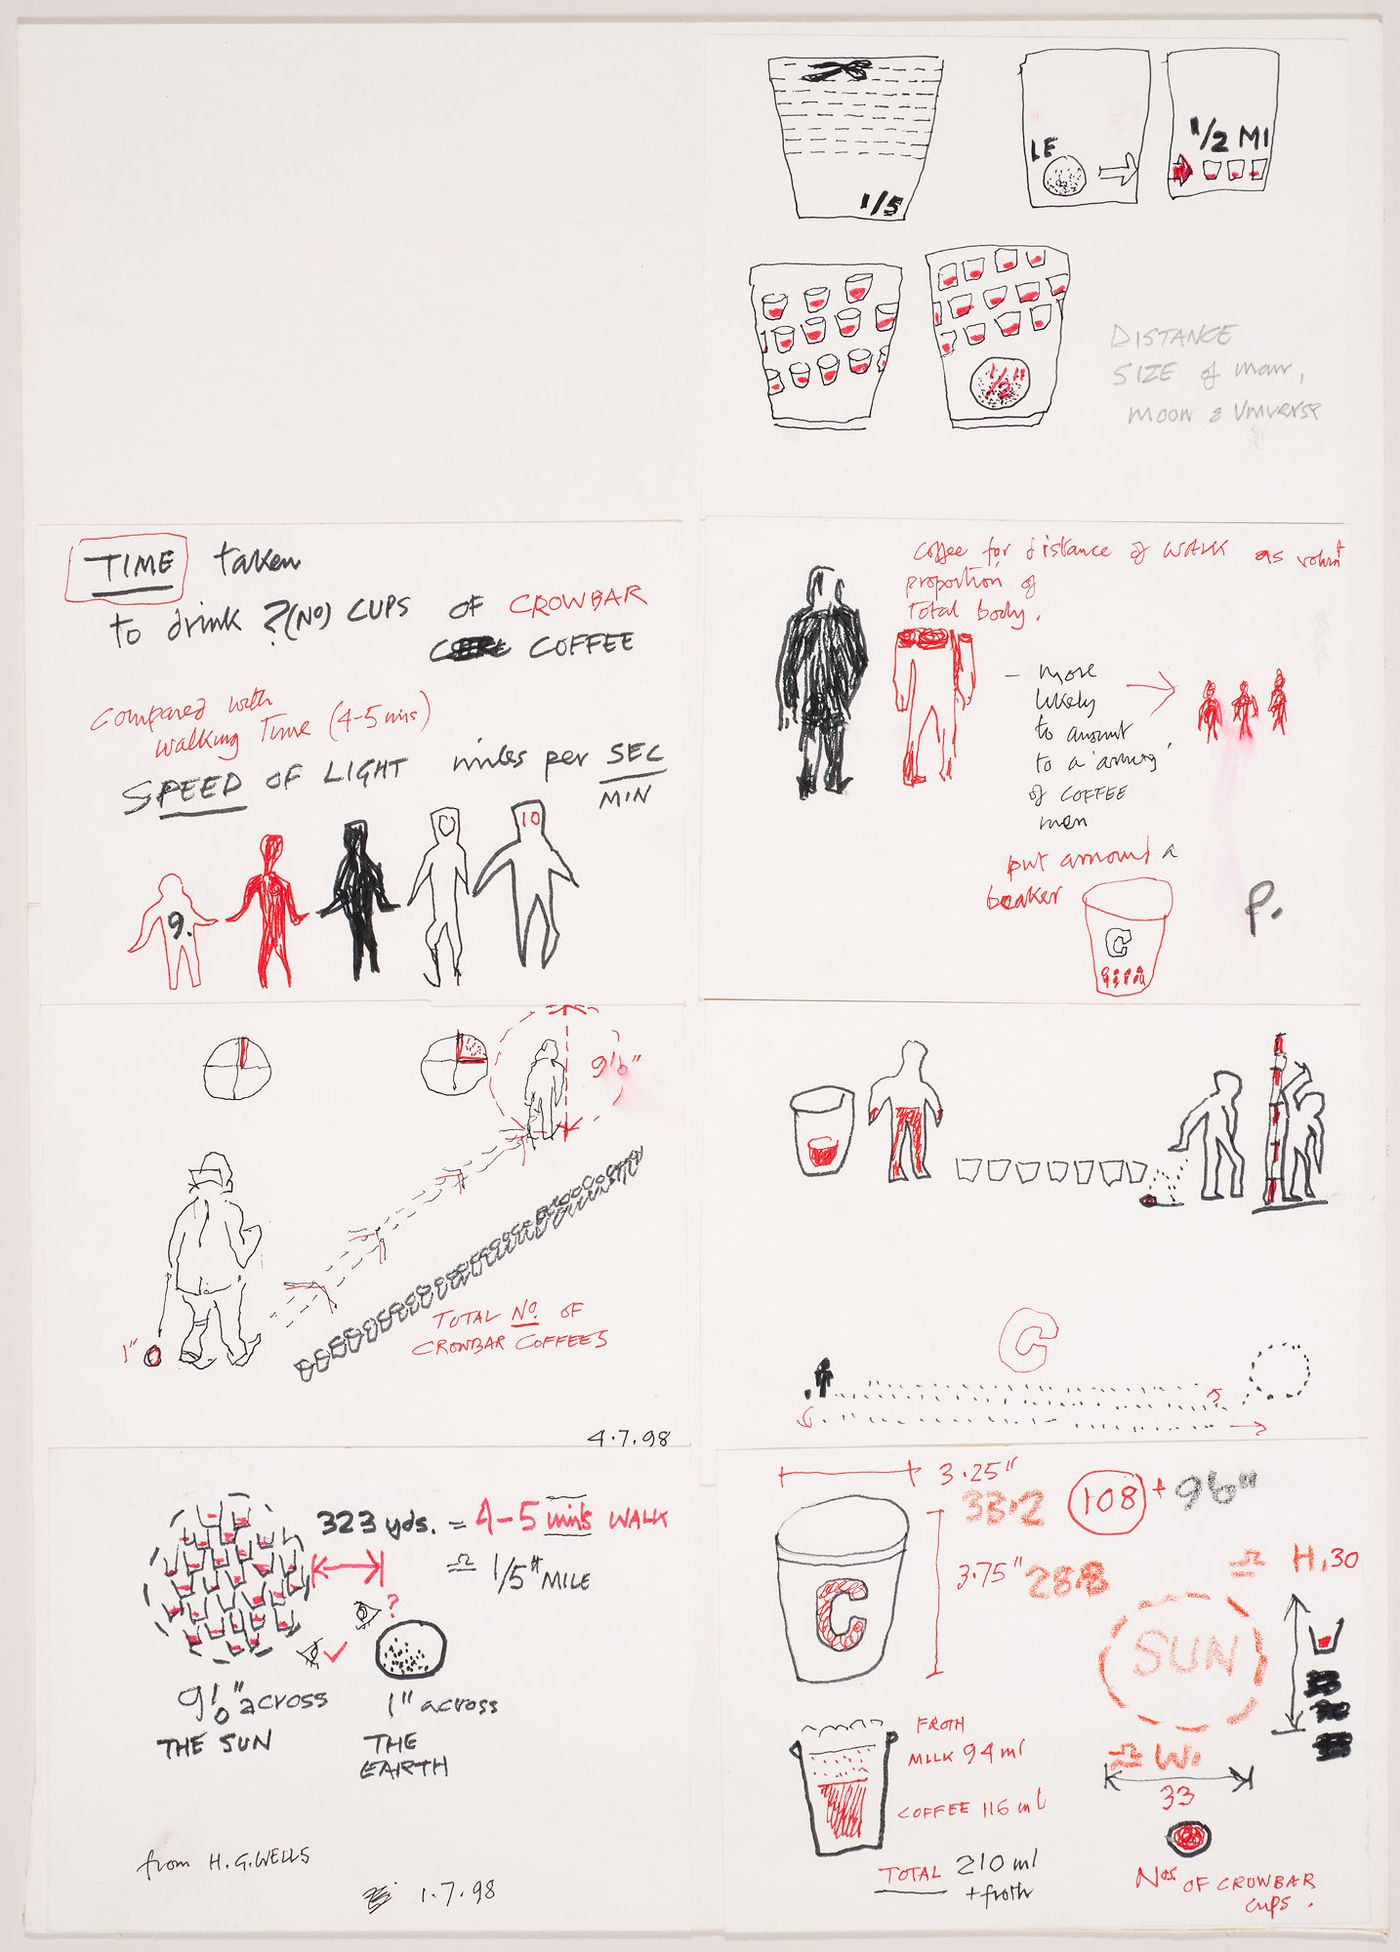 1/5
LE
1/2 MI
1/2"
DISTANCE
SIZE of man,
moon & Universe
TIME taken
to drink ?(NO) CUPS OF CROWBAR
COFFEE
Compared with
walking Time (4-5 mins)
SPEED OF LIGHT miles per SEC
MIN
9.
10
Coffee for distance of WALK as
proportion of
Total body.
- more
likely
to amount
to a 'army'
of COFFEE
men
put around a
beaker
C
P.
9'6"
1"
TOTAL No. OF
CROWBAR COFFEES
4.7.98
C
323 yds. = 4-5 mins WALK
≏ 1/5th MILE
?
9'6" across
THE SUN
1" across
THE
EARTH
from H.G.WELLS
1.7.98
3.25"
33.2
108 + 96"
3.75"
28.8
≏ H.30
C
SUN
W.
33
FROTH
MILK 94 ml
COFFEE 116 ml
TOTAL 210 ml
+ froth
Nos OF CROWBAR
cups.